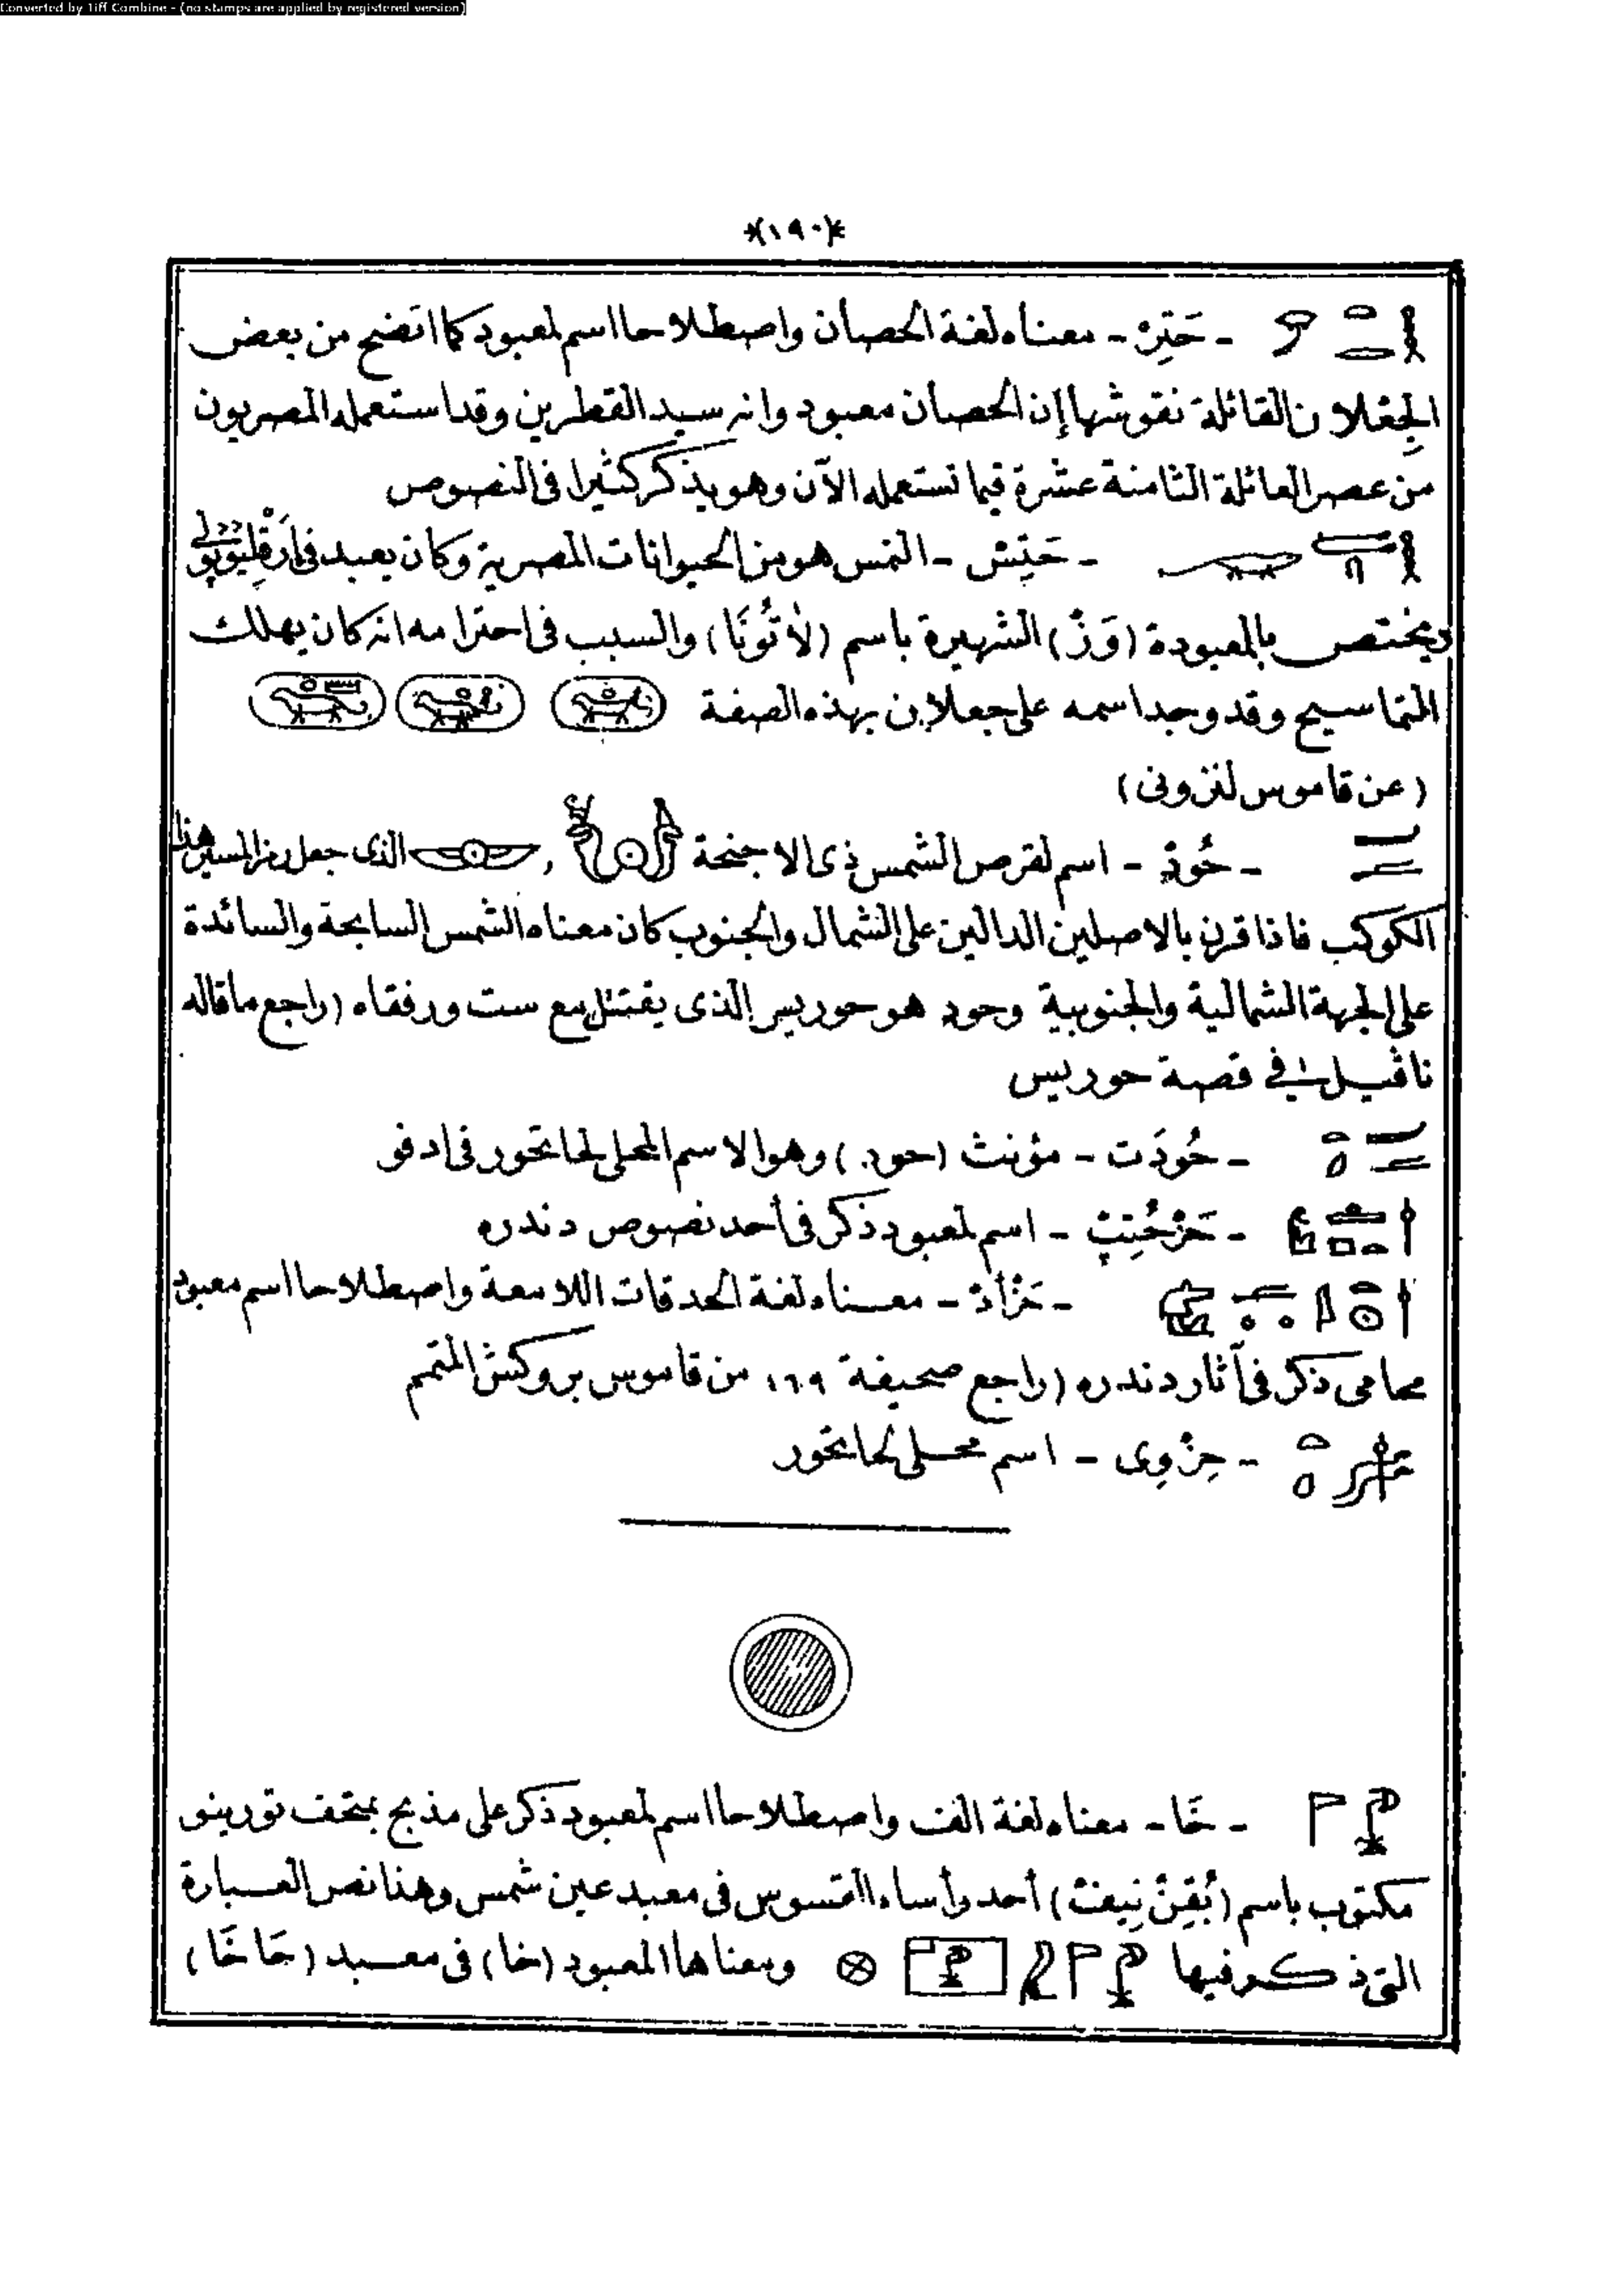 Converted by Tiff Combine - (no stamps are applied by registered version)
*(١٩٠)*
- حَتِرْ - معناه لغة الحصان واصطلاحا اسم لمعبود كما اتضح من بعض
الجِعْلان القائلة نقوشها إن الحصان معبود وانه سيد القطرين وقد استعمله المصريون
من عصر العائلة الثامنة عشرة فيما نستعمله الآن وهو يذكر كثيرا فى النصوص
- حَتِش - النمس هو من الحيوانات المصرية وكان يعبد فى
ويختص بالمعبودة (وَزْ) الشهيرة باسم (لَاتُونَا) والسبب فى احترامه انه كان يهلك
التماسيح وقد وجد اسمه على جعلان بهذه الصفة
(عن قاموس لنزونى)
- حُودْ - اسم لقرص الشمس ذى الاجنحة , الذى جعل رمزا لسير هذا
الكوكب فاذا قرن بالاصلين الدالين على الشمال والجنوب كان معناه الشمس السابحة والسائدة
على الجهة الشمالية والجنوبية وحود هو حوريس الذى يقتتل مع ست ورفقاه (راجع ما قاله
نافيل فى قصة حوريس
- حُودَت - مؤنث (حود) وهو الاسم المحلى لحاتحور فى ادفو
- حَزْحُتِبْ - اسم لمعبود ذكر فى أحد نصوص دندره
- حَزْأَدْ - معناه لغة الحدقات اللامعة واصطلاحا اسم معبود
محامى ذكر فى آثار دندره (راجع صحيفة من قاموس بروكش المتمم
- حِزْوِى - اسم محلى لحاتحور
- خَا - معناه لغة الف واصطلاحا اسم لمعبود ذكر على مذبح بمتحف تورينو
مكتوب باسم أحد رأساء القسوس فى معبد عين شمس وهذا نص العبارة
التى ذكر فيها ومعناها المعبود (خا) فى معبد (حَاخَا)